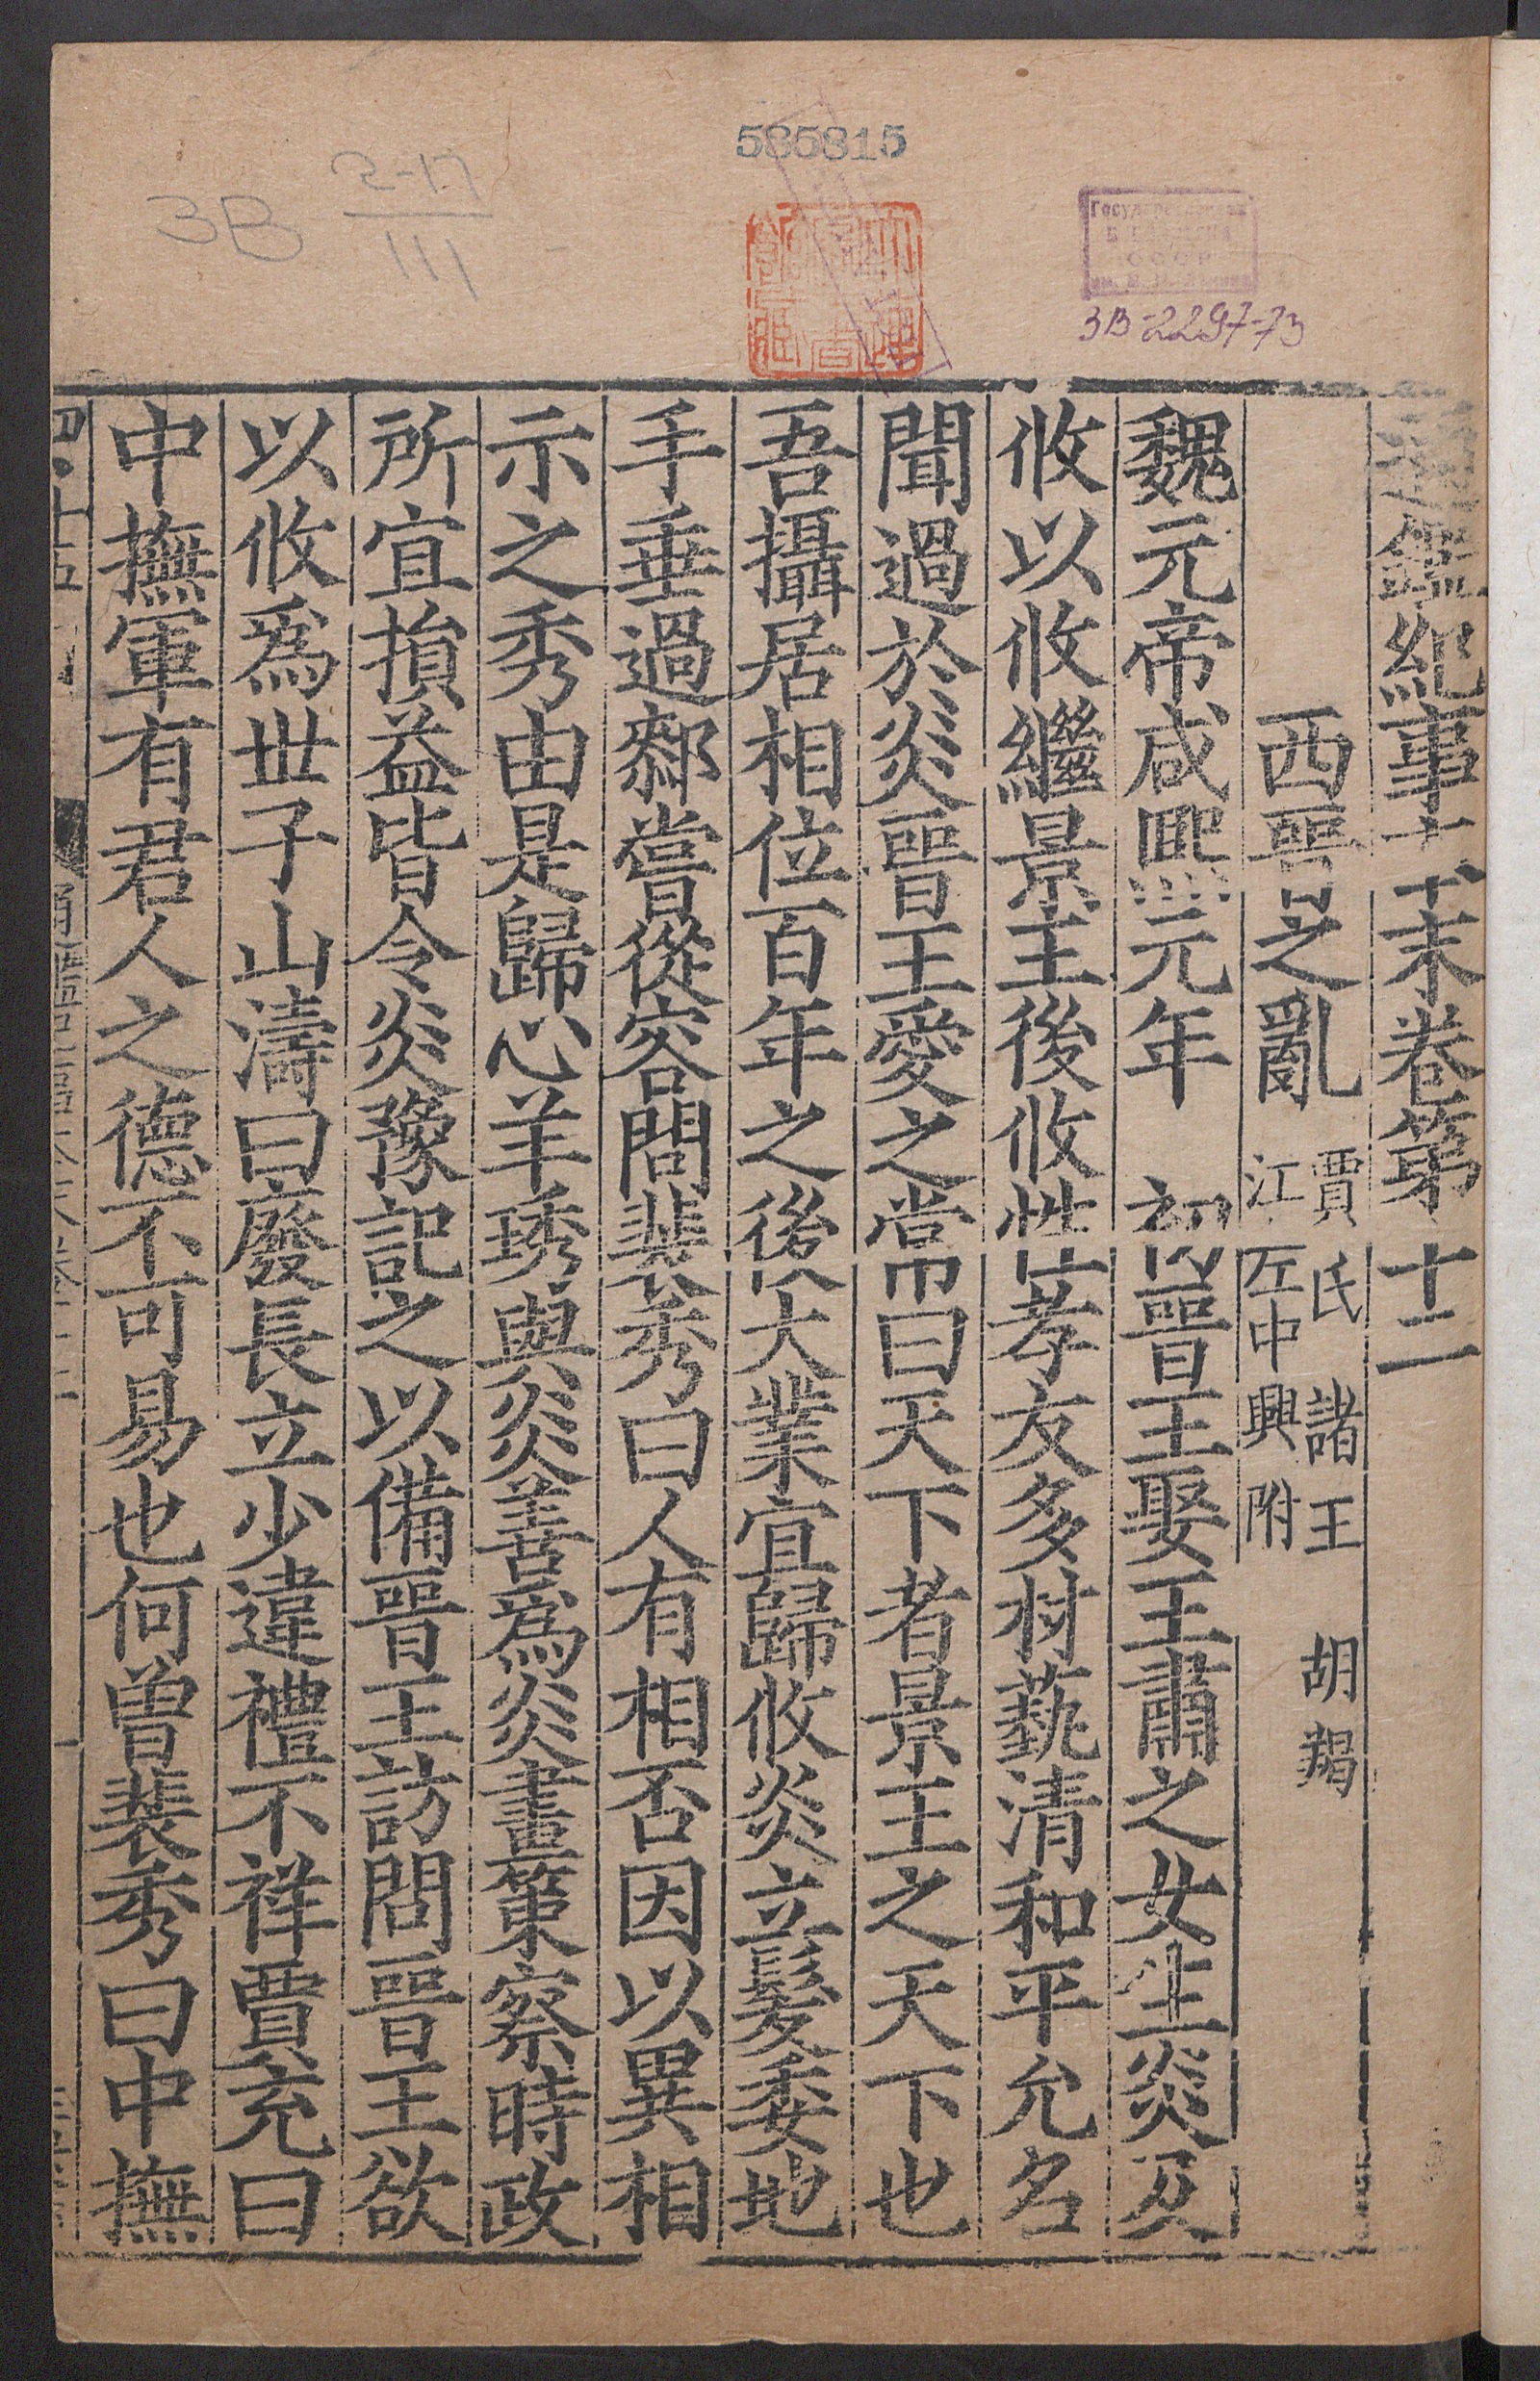 585815
3B 2-17
III
3В-2297-73
通鑑紀事本末卷第十二
西晉之亂 賈氏 諸王 胡羯
江左中興附
魏元帝咸熙元年 初晉王娶王肅之女生炎及
攸以攸繼景王後攸性孝友多材藝清和平允名
聞過於炎晉王愛之常曰天下者景王之天下也
吾攝居相位百年之後大業宜歸攸炎立髮委地
手垂過䣛嘗從容問裴秀曰人有相否因以異相
示之秀由是歸心羊琇與炎善爲炎畫策察時政
所宜損益皆令炎豫記之以備晉王訪問晉王欲
以攸爲世子山濤曰廢長立少違禮不祥賈充曰
中撫軍有君人之德不可易也何曾裴秀曰中撫